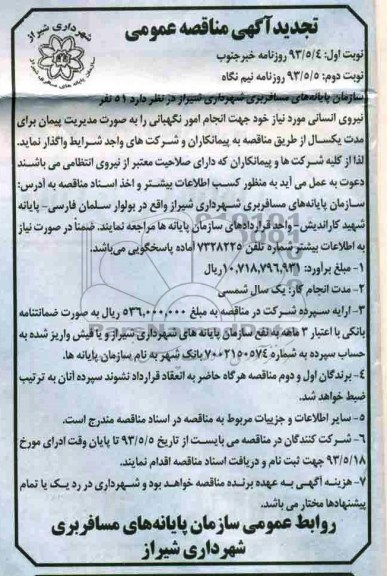 تجدید آگهی مناقصه عمومی
شهرداری شیراز
نوبت اول: ۹۳/۵/۴ روزنامه خبرجنوب
نوبت دوم: ۹۳/۵/۵ روزنامه نیم نگاه
سازمان پایانه‌های مسافربری شهرداری شیراز در نظر دارد ۵۱ نفر
نیروی انسانی مورد نیاز خود جهت انجام امور نگهبانی را به صورت مدیریت پیمان برای
مدت یکسال از طریق مناقصه به پیمانکاران و شرکت های واجد شرایط واگذار نماید.
لذا از کلیه شرکت ها و پیمانکاران که دارای صلاحیت معتبر از نیروی انتظامی می باشند
دعوت به عمل می آید به منظور کسب اطلاعات بیشتر و اخذ اسناد مناقصه به آدرس:
سازمان پایانه‌های مسافربری شهرداری شیراز واقع در بولوار سلمان فارسی- پایانه
شهید کاراندیش- واحد قراردادهای سازمان پایانه ها مراجعه نمایند. ضمناً در صورت نیاز
به اطلاعات بیشتر شماره تلفن ۷۳۲۸۲۲۵ آماده پاسخگویی می‌باشد.
۱- مبلغ برآورد: ۱۰,۷۱۸,۷۹۶,۹۳۱ ریال
۲- مدت انجام کار: یک سال شمسی
۳- ارایه سپرده شرکت در مناقصه به مبلغ ۵۳۶,۰۰۰,۰۰۰ ریال به صورت ضمانتنامه
بانکی با اعتبار ۳ ماهه به نفع سازمان پایانه های شهرداری شیراز و یا فیش واریز شده به
حساب سپرده به شماره ۷۰۰۲۱۵۰۵۷۴ بانک شهر به نام سازمان پایانه ها.
۴- برندگان اول و دوم مناقصه هرگاه حاضر به انعقاد قرارداد نشوند سپرده آنان به ترتیب
ضبط خواهد شد.
۵- سایر اطلاعات و جزییات مربوط به مناقصه در اسناد مناقصه مندرج است.
۶- شرکت کنندگان در مناقصه می بایست از تاریخ ۹۳/۵/۵ تا پایان وقت ادرای مورخ
۹۳/۵/۱۸ جهت ثبت نام و دریافت اسناد مناقصه اقدام نمایند.
۷- هزینه آگهی به عهده برنده مناقصه خواهد بود و شهرداری در رد یک یا تمام
پیشنهادها مختار می باشد.
روابط عمومی سازمان پایانه‌های مسافربری
شهرداری شیراز